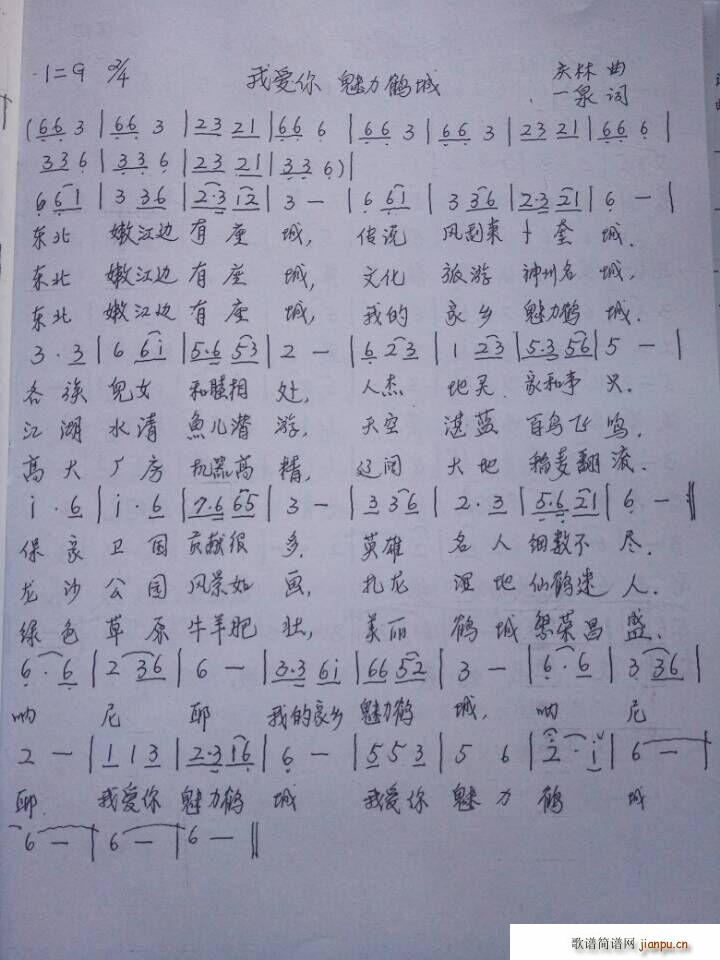 1=G 2/4 我爱你 魅力鹤城 庆林 曲
一泉 词
(66 3 | 66 3 | 23 21 | 66 6 | 66 3 | 66 3 | 23 21 | 66 6 |
33 6 | 33 6 | 23 21 | 33 6) |
6 61 | 3 36 | 2·3 12 | 3 — | 6 61 | 3 36 | 2·3 21 | 6 — |
东北 嫩江边 有座 城, 传说 风刮来 卜奎 城.
东北 嫩江边 有座 城, 文化 旅游 神州名 城,
东北 嫩江边 有座 城, 我的 家乡 魅力鹤 城.
3 · 3 | 6 6i | 5·6 53 | 2 — | 6 23 | 1 23 | 5·3 56 | 5 — |
各族 儿女 和睦相 处, 人杰 地灵 家和事 兴.
江湖 水清 魚儿潜 游, 天空 湛蓝 百鸟飞 鸣.
高大 厂房 机器高 精, 辽阔 大地 稻麦翻 流.
i · 6 | i · 6 | 7·6 65 | 3 — | 3 36 | 2 · 3 | 5·6 21 | 6 — ‖
保家 卫国 贡献很 多, 英雄 名人 细数不 尽.
龙沙 公园 风景如 画, 扎龙 湿地 仙鹤迷 人.
绿色 草原 牛羊肥 壮, 美丽 鹤城 繁荣昌 盛.
6 · 6 | 2 36 | 6 — | 3·3 6i | 66 52 | 3 — | 6 · 6 | 3 36 |
呐 尼 耶 我的家乡 魅力鹤 城, 呐 尼
2 — | 1 1 3 | 2·3 16 | 6 — | 5 5 3 | 5 6 | 2 · i | 6 — |
耶. 我爱你 魅力鹤 城 我爱你 魅力 鹤 城
6 — | 6 — | 6 — ‖
歌谱简谱网
jianpu.cn